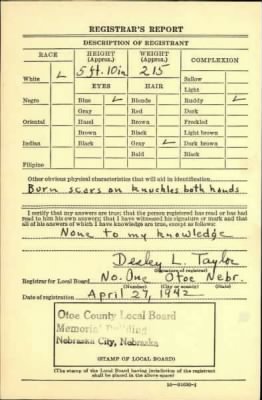 REGISTRAR'S REPORT
DESCRIPTION OF REGISTRANT
RACE HEIGHT (Approx.) WEIGHT (Approx.) COMPLEXION
5 ft. 10 in 215
White Sallow
EYES HAIR Light
Negro Blue Blonde Ruddy
Gray Red Dark
Oriental Hazel Brown Freckled
Brown Black Light brown
Indian Black Gray Dark brown
Bald Black
Filipino
Other obvious physical characteristics that will aid in identification
Burn scars on knuckles both hands
I certify that my answers are true; that the person registered has read or has had
read to him his own answers; that I have witnessed his signature or mark and that
all of his answers of which I have knowledge are true, except as follows:
None to my knowledge
Desley L. Taylor
(Signature of registrar)
Registrar for Local Board No. One Otoe Nebr.
(Number) (City or county) (State)
Date of registration April 27, 1942
Otoe County Local Board
Memorial Building
Nebraska City, Nebraska
(STAMP OF LOCAL BOARD)
(The stamp of the Local Board having jurisdiction of the registrant
shall be placed in the above space)